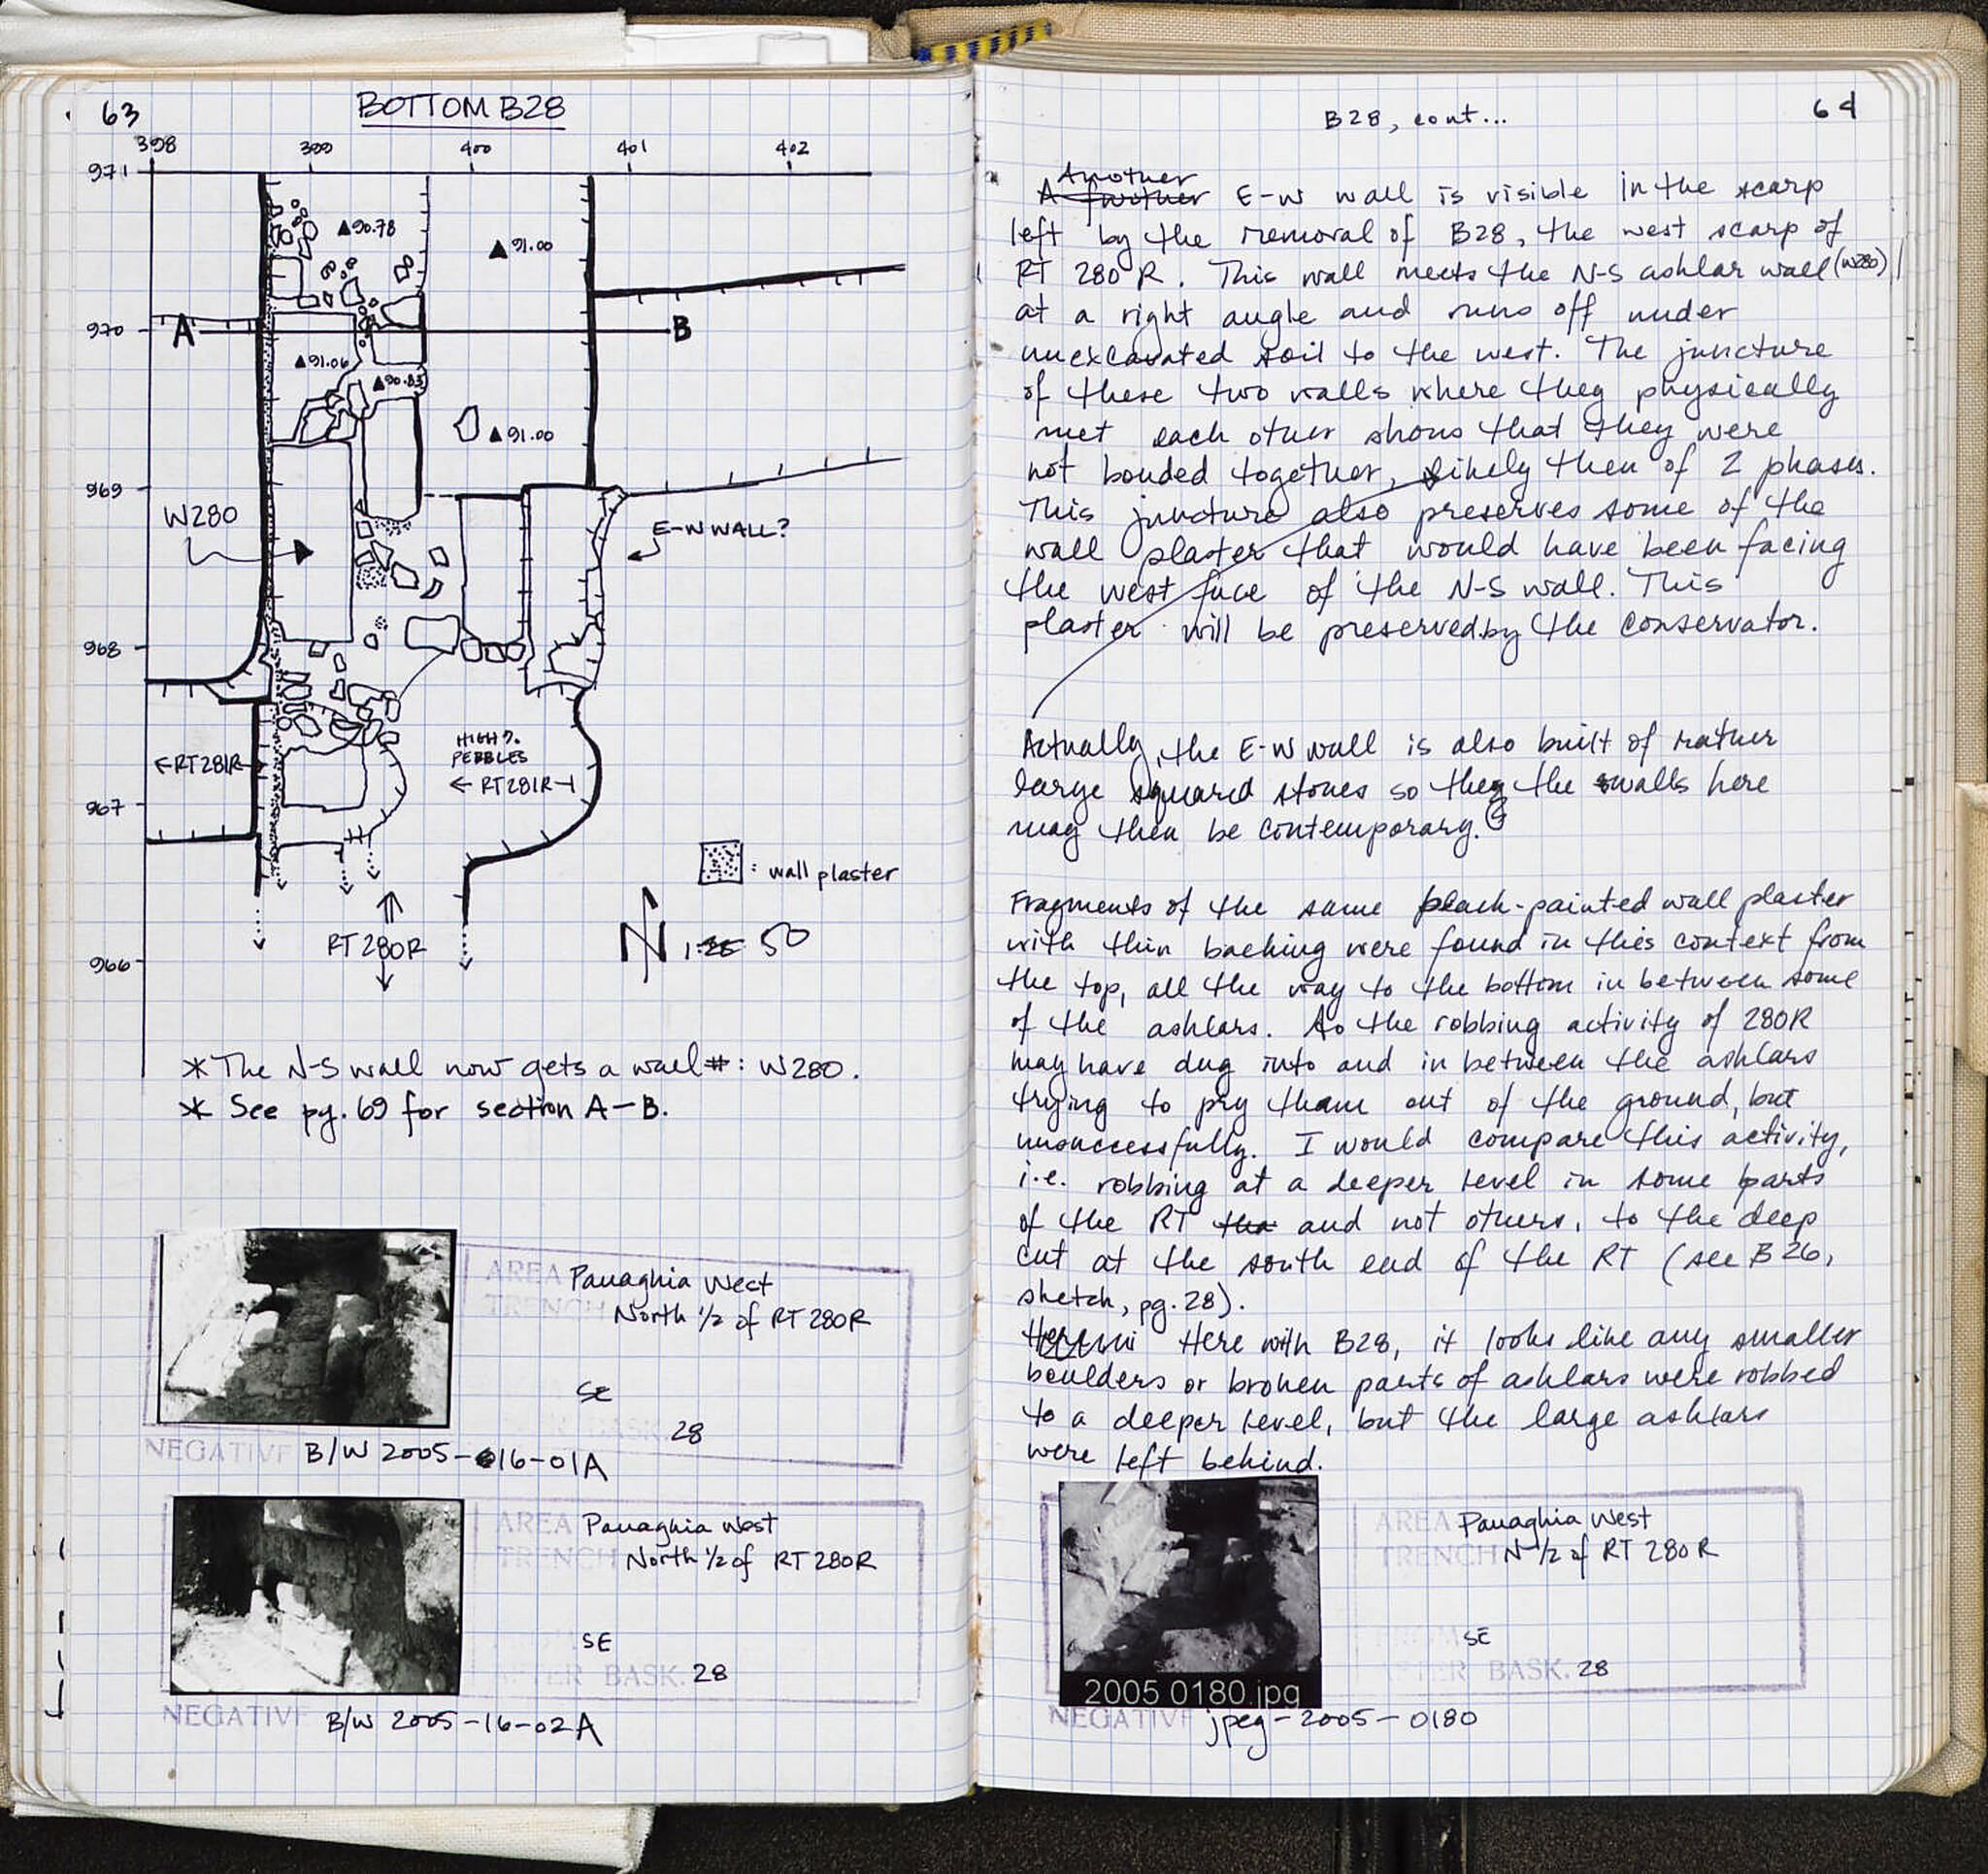 63
BOTTOM B28
398 399 400 401 402
971
▲90.78
▲91.00
970
A
B
▲91.06
▲90.83
▲91.00
969
W280
E-W WALL?
968
←RT281R
HIGH %
PEBBLES
← RT281R
967
: wall plaster
RT 280R
N 1:25 50
966
* The N-S wall now gets a wall #: W280.
* See pg. 69 for section A-B.
AREA Panaghia West
TRENCH North 1/2 of RT 280R
SE
28
NEGATIVE B/W 2005-016-01A
AREA Panaghia West
TRENCH North 1/2 of RT 280R
SE
AFTER BASK. 28
NEGATIVE B/W 2005-16-02A
B28, cont...
64
Another
A further E-W wall is visible in the scarp
left by the removal of B28, the west scarp of
RT 280 R. This wall meets the N-S ashlar wall (W280)
at a right angle and runs off under
unexcavated soil to the west. The juncture
of these two walls where they physically
met each other shows that they were
not bonded together, likely then of 2 phases.
This juncture also preserves some of the
wall plaster that would have been facing
the west face of the N-S wall. This
plaster will be preserved by the conservator.
Actually, the E-W wall is also built of rather
large squared stones so they the walls here
may then be contemporary.
Fragments of the same peach-painted wall plaster
with thin backing were found in this context from
the top, all the way to the bottom in between some
of the ashlars. So the robbing activity of 280R
may have dug into and in between the ashlars
trying to pry tham out of the ground, but
unsuccessfully. I would compare this activity,
i.e. robbing at a deeper level in some parts
of the RT tha and not others, to the deep
cut at the south end of the RT (see B26,
sketch, pg. 28).
Here with B28, it looks like any smaller
boulders or broken parts of ashlars were robbed
to a deeper level, but the large ashlars
were left behind.
AREA Panaghia West
TRENCH N 1/2 of RT 280R
SE
BASK. 28
2005 0180.jpg
NEGATIVE jpeg-2005-0180